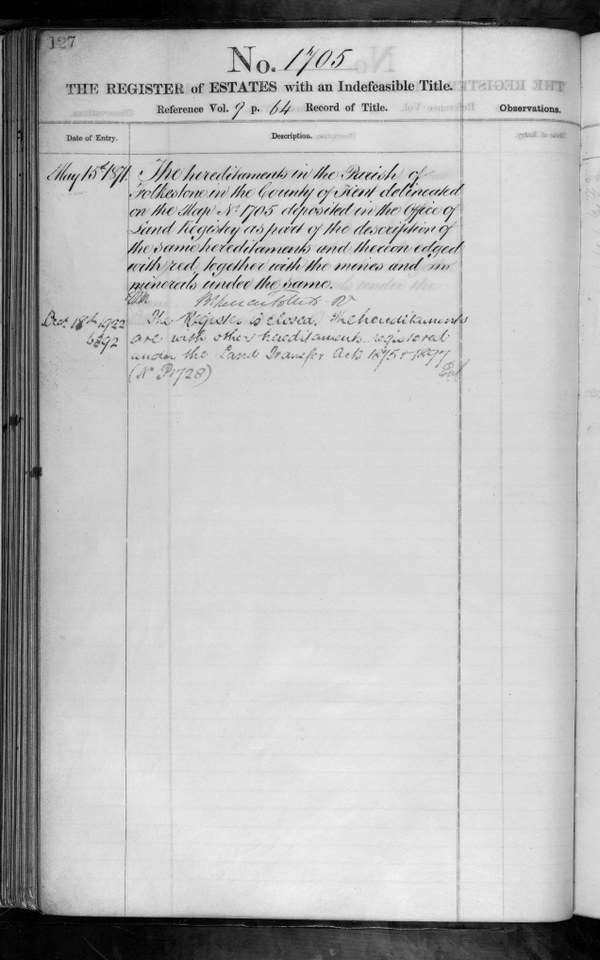 127
No. 1705
THE REGISTER of ESTATES with an Indefeasible Title.
Reference Vol. 9 p. 64 Record of Title.
Observations.
Date of Entry.
Description.
May 15th 1871
The hereditaments in the Parish of
Folkestone in the County of Kent delineated
on the Map No 1705 deposited in the Office of
Land Registry as part of the description of
the same hereditaments and thereon edged
with red, together with the mines and
minerals under the same.
Decr 18th 1922
6892
The Register is closed. The hereditaments
are with other hereditaments registered
under the Land Transfer Acts 1875 & 1897
(No P1728)